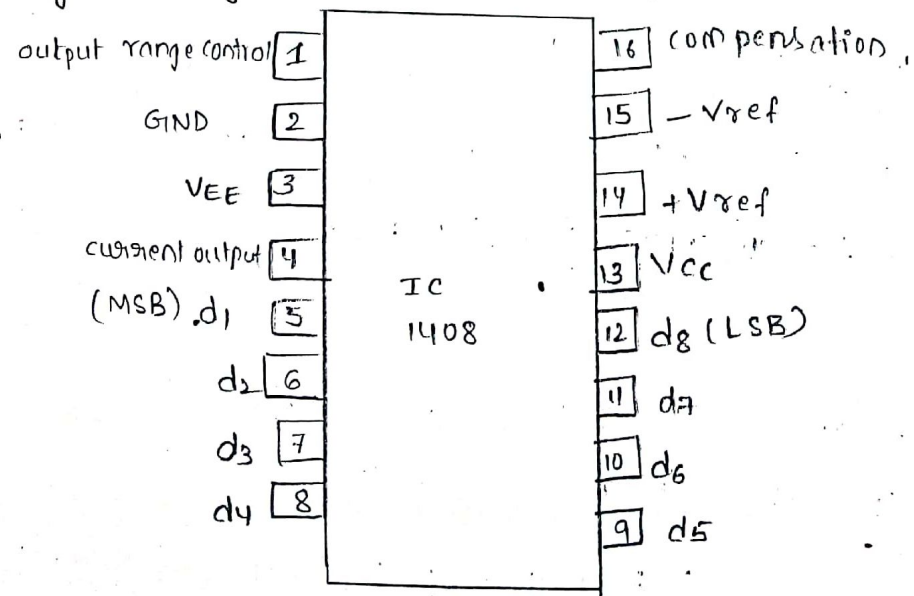 output range control 1
GND 2
VEE 3
current output 4
(MSB) d1 5
d2 6
d3 7
d4 8
IC
1408
16 compensation
15 - Vref
14 + Vref
13 Vcc
12 d8 (LSB)
11 d7
10 d6
9 d5